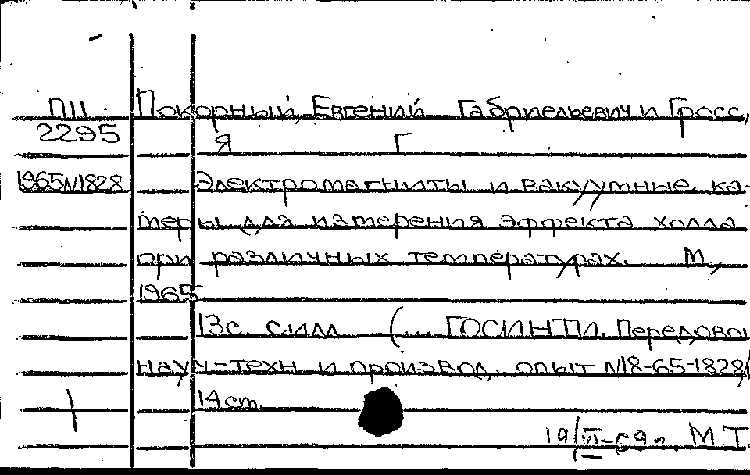 ПII Покорный, Евгений Габриельевич и Гросс,
2295 Я Г
1965 N1828 Электромагниты и вакуумные ка-
меры для измерения эффекта холла
при различных температурах. М.,
1965
13с с илл (... ГОСИНТИ. Передовой
науч-техн и производ, опыт N18-65-1828/
14 cm.
19/VI-69г. М.Т.